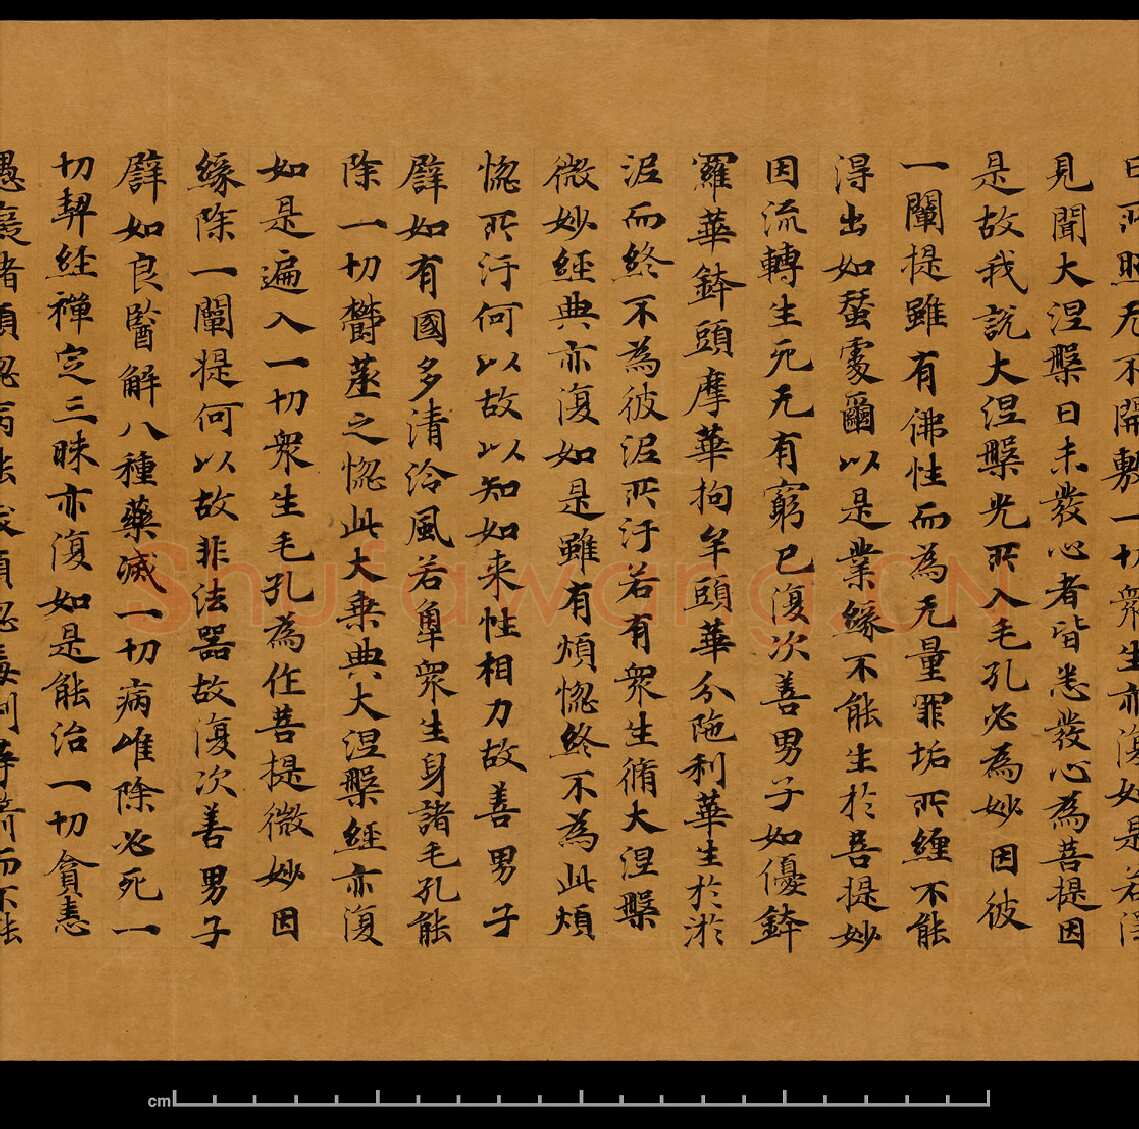 日所照无不開敷一切衆生亦復如是若得
見聞大涅槃日未發心者皆悉發心為菩提因
是故我說大涅槃光所入毛孔必為妙因彼
一闡提雖有佛性而為无量罪垢所纏不能
得出如蚕處繭以是業緣不能生於菩提妙
因流轉生死无有窮已復次善男子如優鉢
羅華鉢頭摩華拘牟頭華分陁利華生於淤
泥而終不為彼泥所汙若有衆生脩大涅槃
微妙經典亦復如是雖有煩惱終不為此煩
惱所汙何以故以知如来性相力故善男子
譬如有國多清冷風若衆生身諸毛孔能
除一切欝蒸之惱此大乗典大涅槃經亦復
如是遍入一切衆生毛孔為作菩提微妙因
緣除一闡提何以故非法器故復次善男子
譬如良醫解八種藥滅一切病唯除必死一
切契經禪定三昧亦復如是能治一切貪恚
愚癡諸煩惱病能拔煩惱毒刺等箭而不能
Shufawang.CN
cm